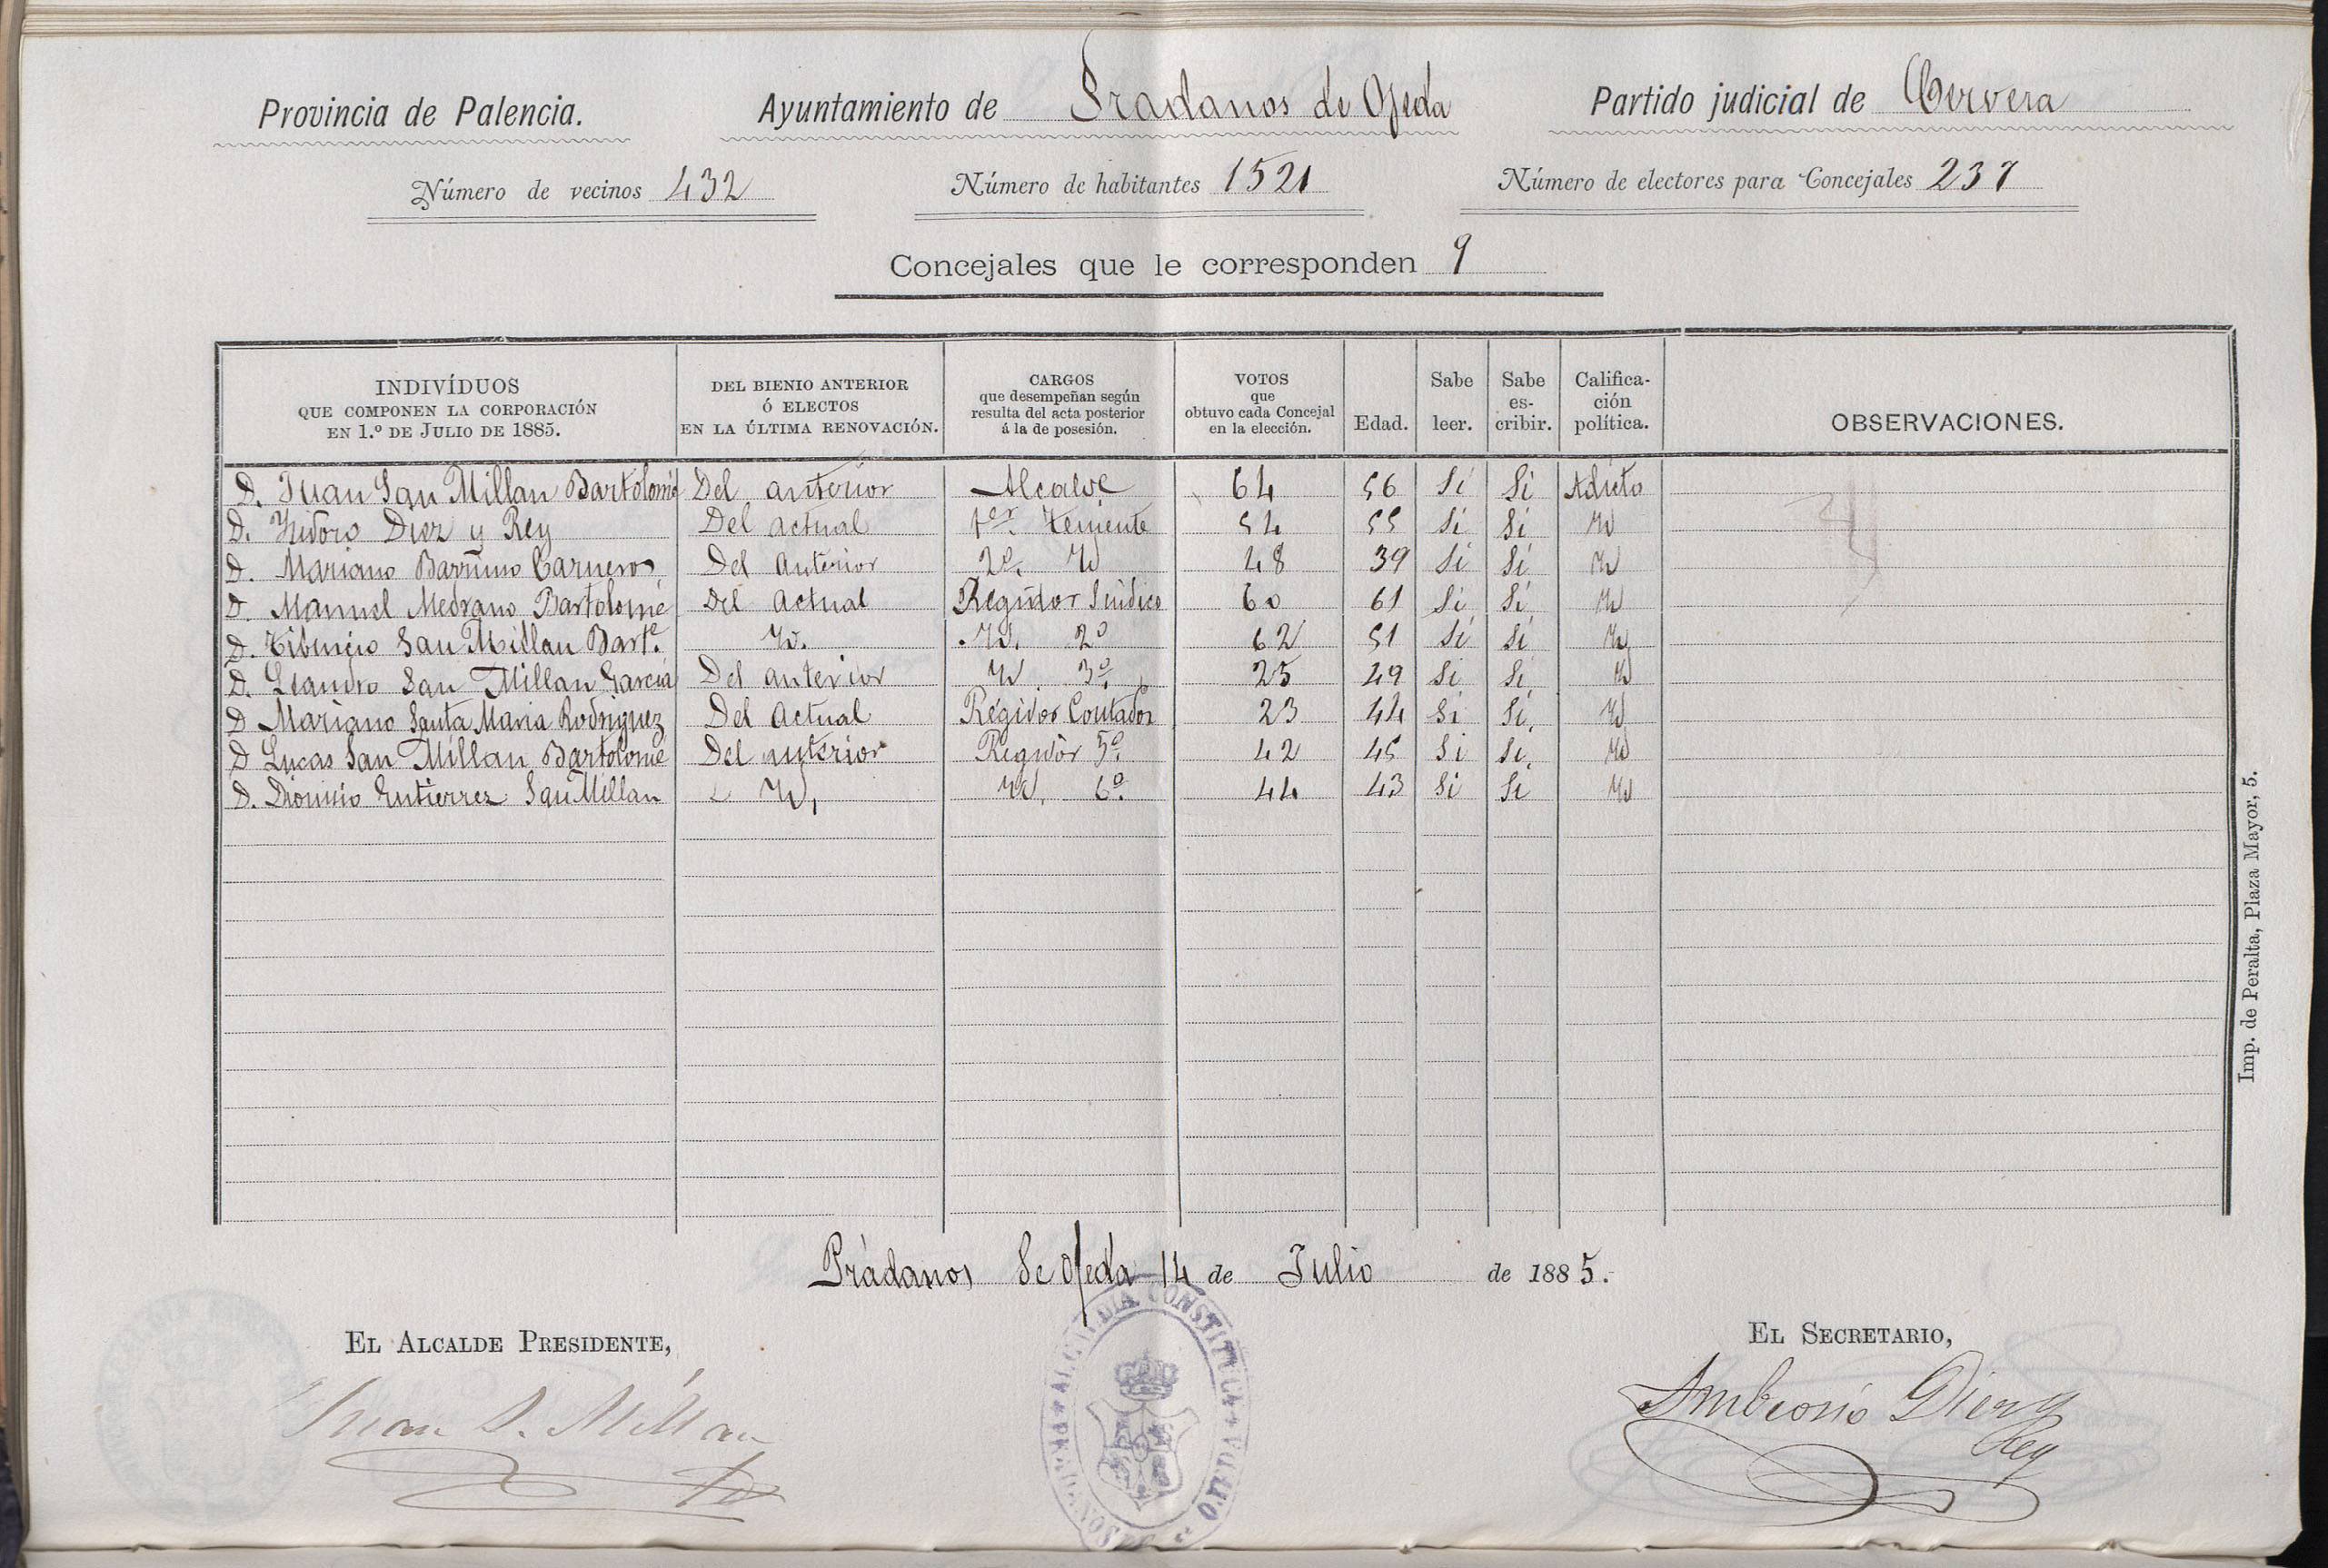 Provincia de Palencia. Ayuntamiento de Pradanos de Ojeda Partido judicial de Cervera
Número de vecinos 432 Número de habitantes 1521 Número de electores para Concejales 237
Concejales que le corresponden 9
INDIVÍDUOS QUE COMPONEN LA CORPORACIÓN EN 1.º DE JULIO DE 1885. DEL BIENIO ANTERIOR Ó ELECTOS EN LA ÚLTIMA RENOVACIÓN. CARGOS que desempeñan según resulta del acta posterior á la de posesión. VOTOS que obtuvo cada Concejal en la elección. Edad. Sabe leer. Sabe es-cribir. Califica-ción política. OBSERVACIONES.
D. Juan San Millan Bartolomé Del anterior Alcalde 64 56 Si Si Adicto
D. Ysidoro Diez y Rey Del actual 1er. teniente 54 55 Si Si Yd
D. Mariano Barruno Carneros Del Anterior 2º. Yd 48 39 Si Si Yd
D. Manuel Medrano Bartolomé Del Actual Regidor Sindico 60 61 Si Si Yd
D. Tiburcio San Millan Barte. Yd. Yd. 2º 62 51 Si Si Yd
D. Leandro San Millan Garcia Del anterior Yd. 3º. 25 49 Si Si Yd
D Mariano Santa Maria Rodriguez Del Actual Regidor Contador 23 44 Si Si. Yd
D Lucas San Millan Bartolomé Del anterior Regidor 5º. 42 45 Si Si. Yd
D. Dionisio Gutierrez San Millan Yd, Yd. 6º. 44 43 Si Si Yd
Imp. de Peralta, Plaza Mayor, 5.
Prádanos de Ojeda 14 de Julio de 1885.
EL ALCALDE PRESIDENTE, EL SECRETARIO,
Juan S. Millan Ambrosio Diez y
Rey
ALCALDIA CONSTITUCIONAL PRADANOS DE OJEDA